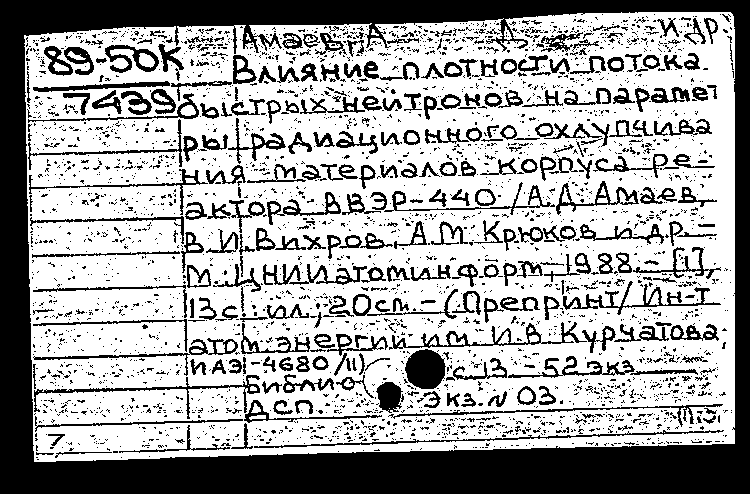 Амаев, А Д И ДР.
89-50К
7439
Влияние плотности потока
быстрых нейтронов на парамет
ры радиационного охлупчива
ния материалов корпуса ре-
актора ВВЭР-440 /А.Д. Амаев,
В.И. Вихров, А.М. Крюков и др. –
М.: ЦНИИатоминформ, 1988. – [1],
13 с.: ил.; 20 см. – (Препринт/ Ин-т
атом. энергии им. И.В. Курчатова;
ИАЭ-4680/11)
Библио с 13 – 52 экз
ДСП. Экз. N 03.
7